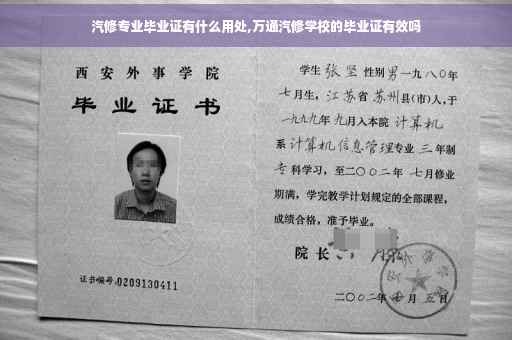 汽修专业毕业证有什么用处,万通汽修学校的毕业证有效吗
西安外事学院
毕业证书
证书编号:0209130411
学生张坚性别男一九八〇年
七月生，江苏省苏州县(市)人,于
一九九九年九月入本院计算机
系计算机信息管理专业三年制
专科学习，至二〇〇二年七月修业
期满，学完教学计划规定的全部课程，
成绩合格，准予毕业。
院长
二〇〇二年 月五日